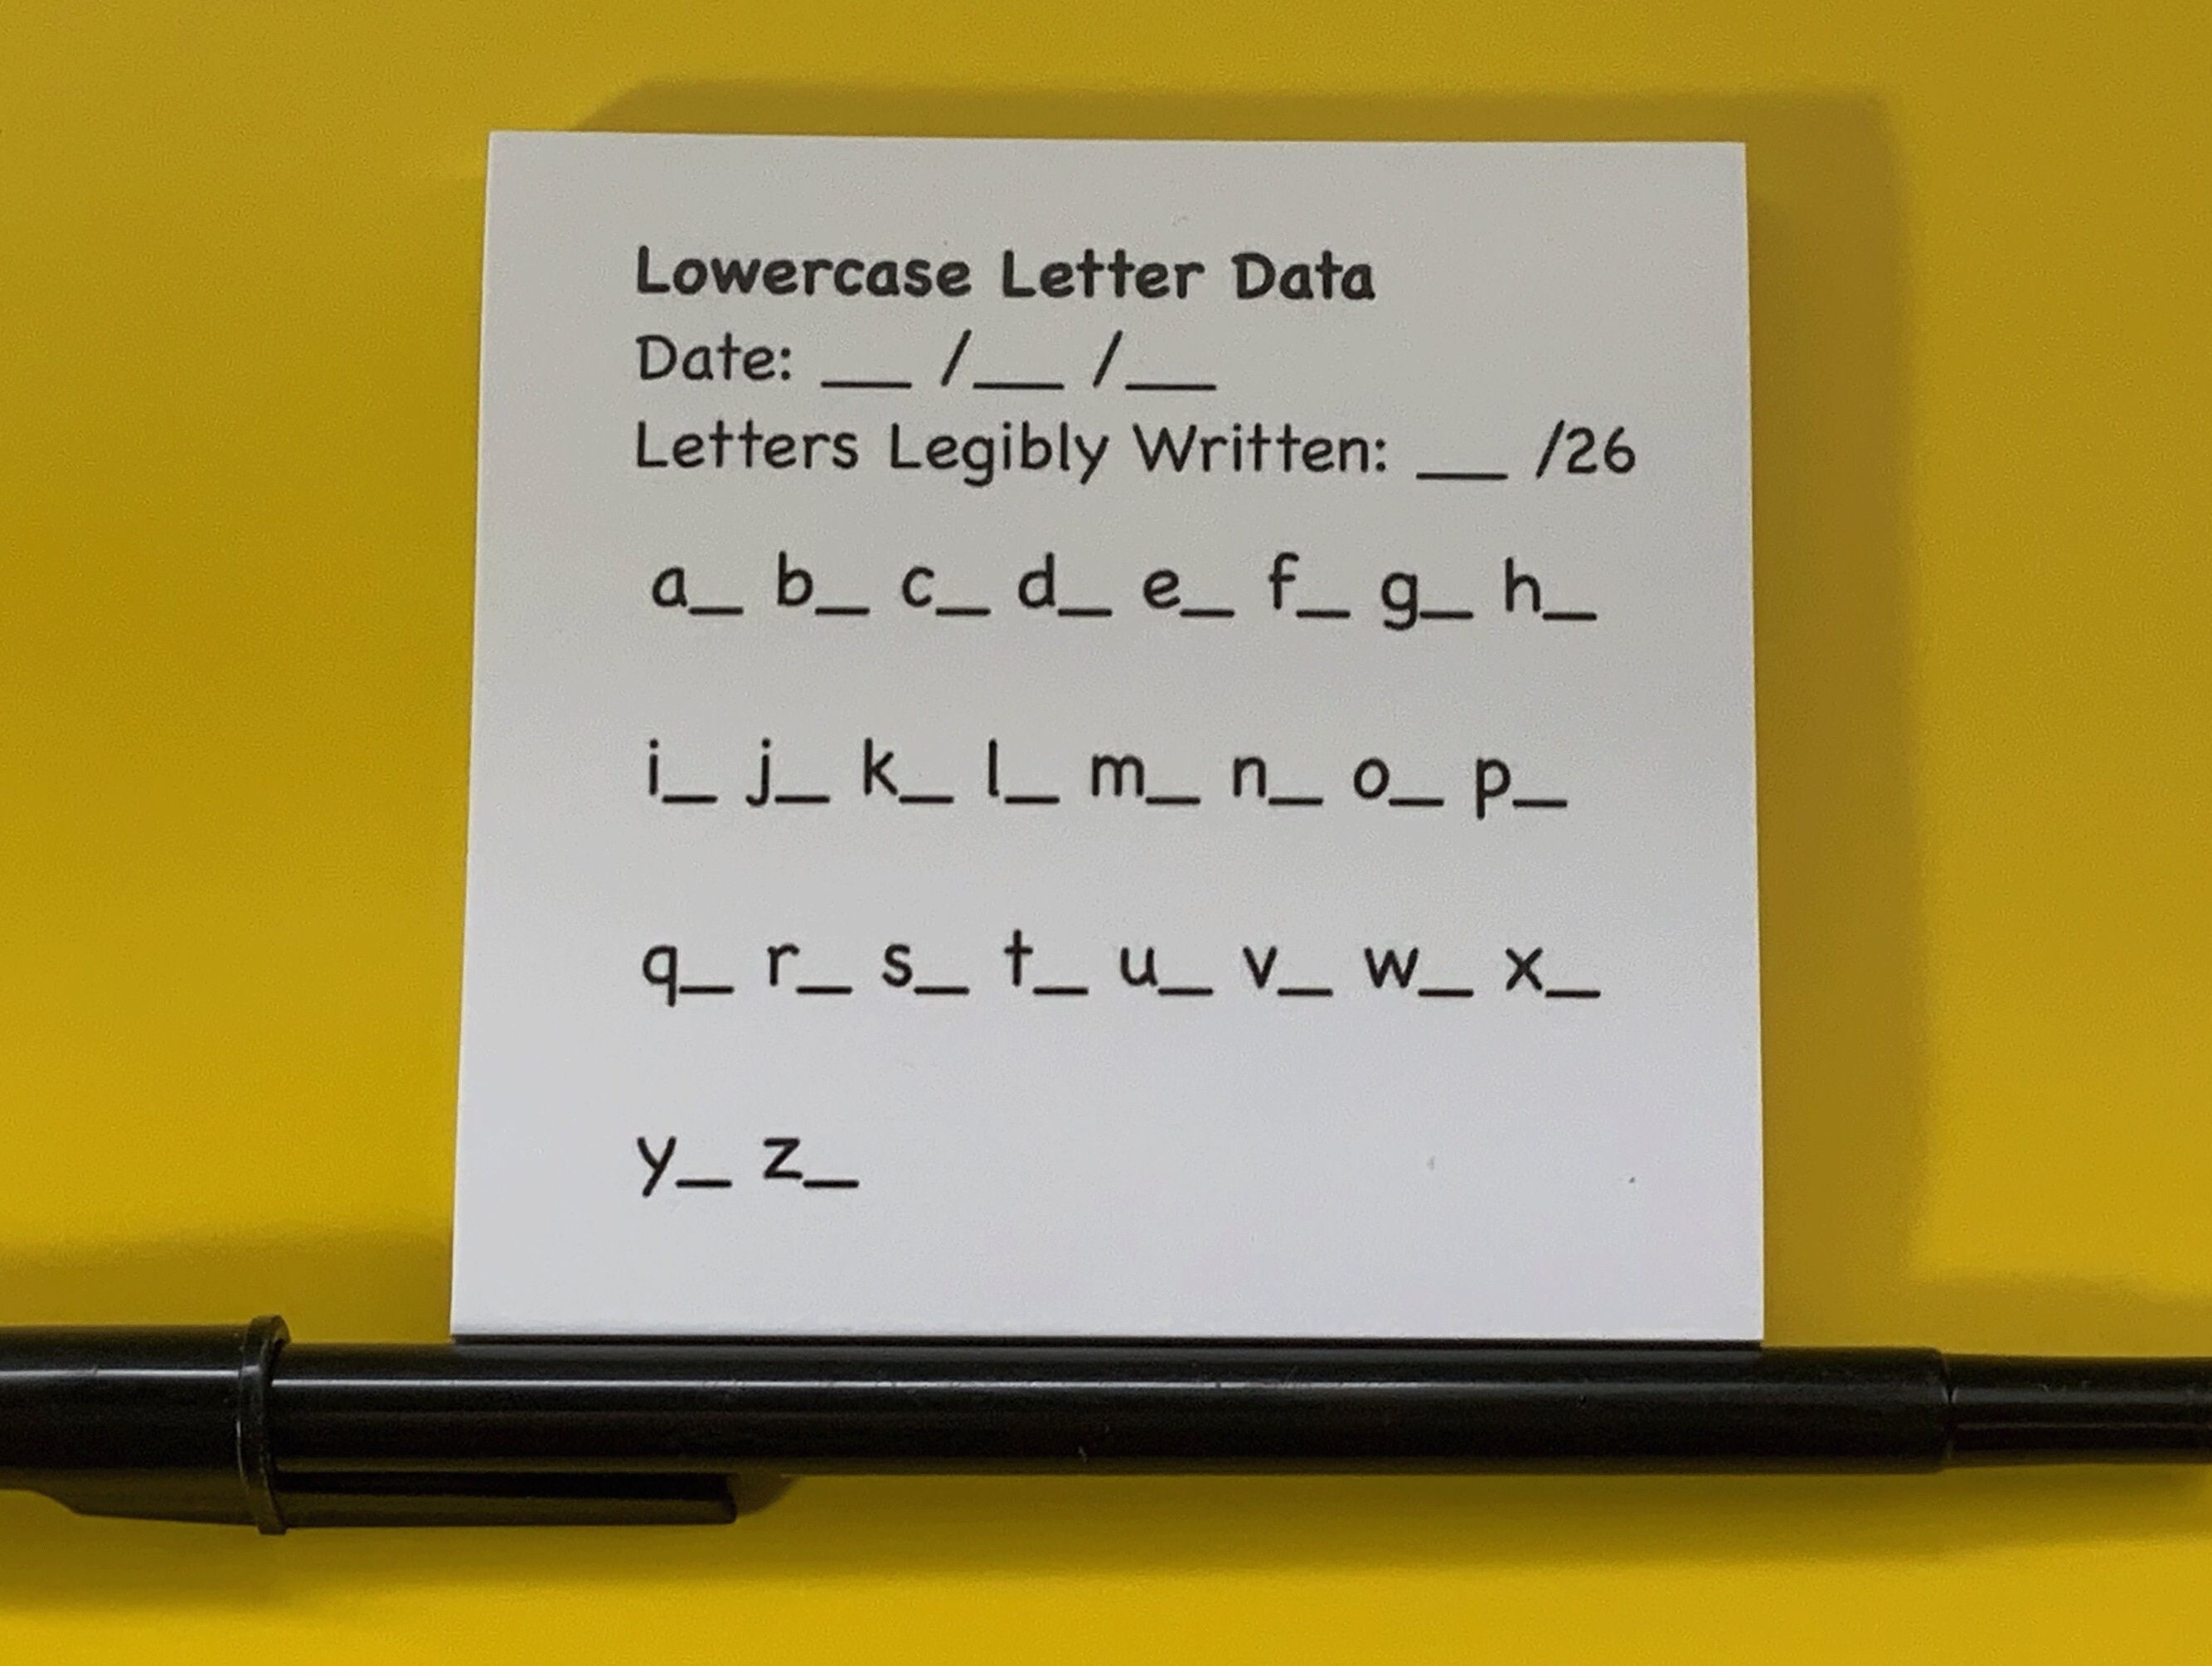 Lowercase Letter Data
Date: __ /__ /__
Letters Legibly Written: __ /26
a_ b_ c_ d_ e_ f_ g_ h_
i_ j_ k_ l_ m_ n_ o_ p_
q_ r_ s_ t_ u_ v_ w_ x_
y_ z_